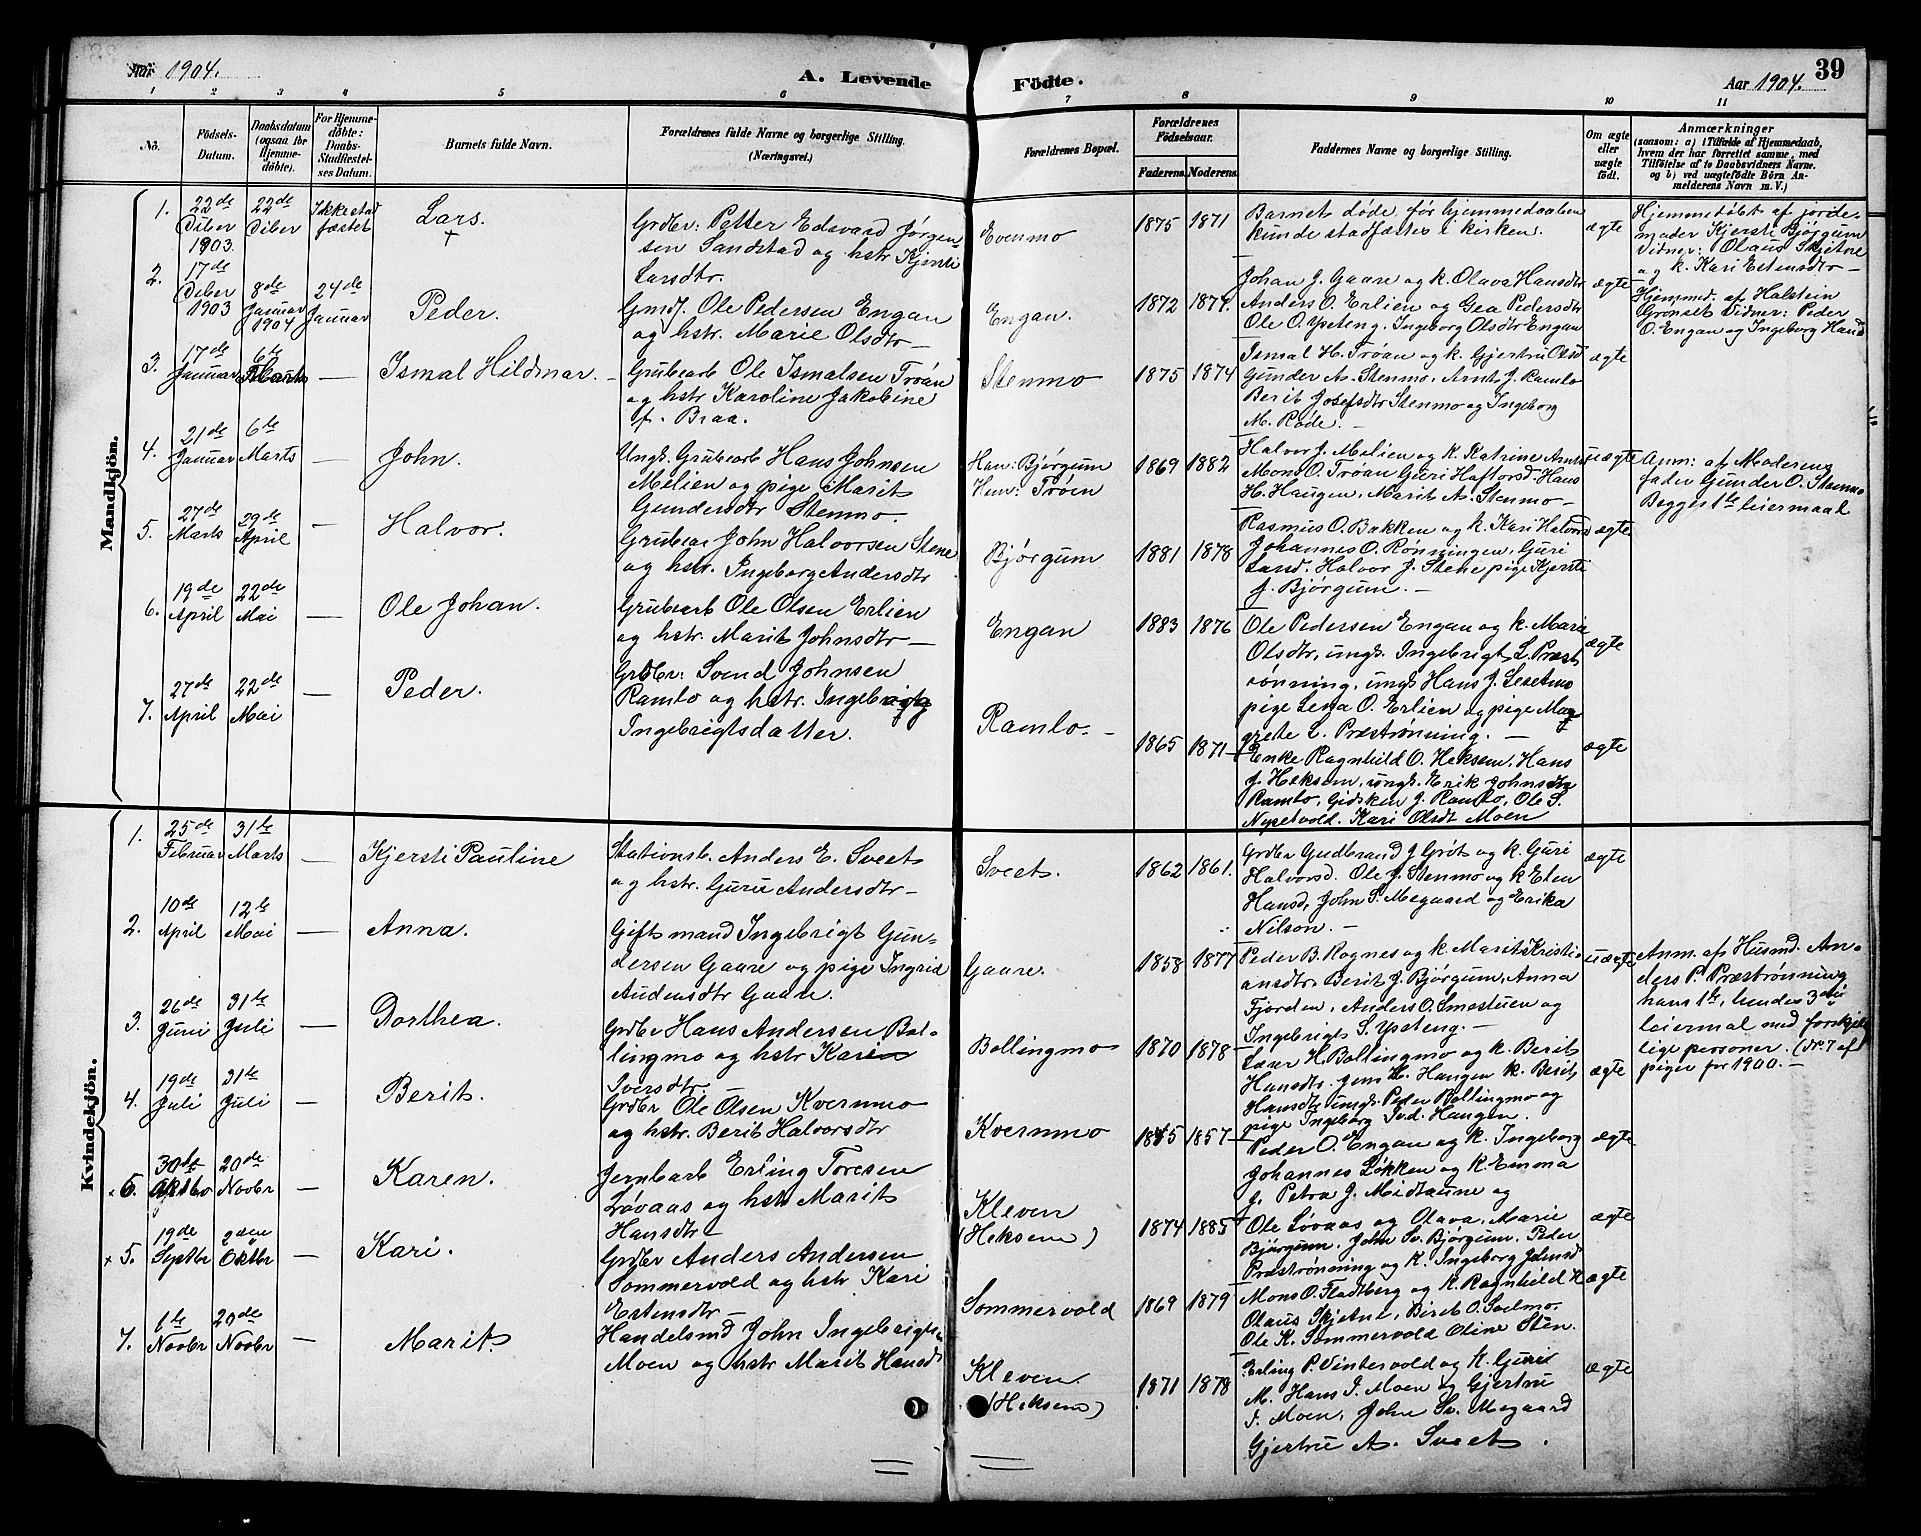 Aar 1904.
A. Levende
Födte.
Aar 1904.
39
1 2 3 4 5 6 7 8 9 10 11
No.
Födsels-
Datum.
Daabsdatum
(ogsaa for
Hjemme-
döbte).
For Hjemme-
döbte:
Daabs-
Stadfæstel-
ses Datum.
Barnets fulde Navn.
Forældrenes fulde Navne og borgerlige Stilling.
(Næringsvei.)
Forældrenes Bopæl.
Forældrenes
Födselsaar.
Faderens. Moderens.
Faddernes Navne og borgerlige Stilling.
Om ægte
eller
uægte
födt.
Anmærkninger
(saasom: a) i Tilfælde af Hjemmedaab,
hvem der har forrettet samme, med
Tilföielse af to Daabsvidners Navne.
og b) ved uægtefödte Börn An-
melderens Navn m. V.)
Mandkjön.
1.
22de
Dcber
1903.
22de
Dcber
Ikke stad
fæstet
Lars.
+
Grdbr: Petter Edevard Jörgen-
sen Sandstad og hstr Kjersti
Larsdtr.
Evenmo
1875 1871
Barnet döde för hjemmedaaben
kunde stadfæstes i kirken.
ægte
Hjemmedöbt af jorde-
moder Kjersti Bjørgum
Vidner: Olaus Skjetne
og k. Kari Estensdtr —
2.
17de
Dcber
1903
8de
Januar
1904
24de
Januar
Peder.
Gmd. Ole Pedersen Engan
og hstr. Marie Olsdtr —
Engan.
1872 1874.
Johan J. Gaare og k. Olava Hansdtr
Anders O. Erlien og Gea Pedersdtr
Ole O. Ysteng. Ingeborg Olsdtr Engan
ægte
Hjemmed: af Halstein
Grönset Vidner: Peder
O. Engan og Ingeborg Hansd
3.
17de
Januar
6te
Marts
—
Ismal Hildmar.
Grubearb Ole Ismalsen Tröan
og hstr Karoline Jakobine
f. Braa.
Stenmo
1875 1874
Ismal H. Tröan og k. Gjertru Olsd
Gunder A. Stenmo, Arnt J. Ramlo
Berit Josefsdtr Stenmo og Ingeborg
M. Röde. —
ægte
4.
21de
Januar
6te
Marts
—
John.
Ungk. Grubearb Hans Johnsen
Mölien og pige Marit
Gundersdtr Stenmo.
Han: Bjørgum
Hun: Tröen
1869 1882
Halvor J. Mølien og k. Katrine Arnts
Mons O. Tröan Guri Haftorsd. Hans
H. Haugen, Marit A. Stenmo —
uægte
Anm: af Moderens
fader Gunder O. Stenmo
Begges 1te leiermaal
5.
27de
Marts
29de
April
—
Halvor.
Grubear John Halvorsen Stene
og hstr. Ingeborg Andersdtr
Bjørgum
1881 1878
Rasmus O. Bakken og k. Kari Halvors
Johannes O. Rönningen, Guri
Larsd. Halvor J. Stene pige Kjersti
J. Bjørgum. —
ægte
6.
19de
April
22de
Mai
—
Ole Johan.
Grubearb Ole Olsen Erlien
og hstr. Marit Johnsdtr —
Engan
1883 1876
Ole Pedersen Engan og k. Marie
Olsdtr, ungk. Ingebrigt L. Præst
rønning, ungk Hans J. Lesetmo
pige Lena O. Erlien og pige Mar
grethe L. Præstrønning. —
ægte
7.
27de
April
22de
Mai
—
Peder.
Grdbr: Svend Johnsen
Ramlo og hstr. Ingebrig
Ingebrigtsdatter.
Ramlo. —
1865 1871
Enke Ragnhild O. Heksem, Hans
J. Heksem, ungk. Erik Johnsdtr
Ramlo, Gidsken J. Ramlo, Ole S.
Nysetvold. Kari Olsdt Moen
ægte
Kvindekjön.
1.
25de
Februar
31te
Marts
—
Kjersti Pauline
Stationsb. Anders E. Sveet
og hstr. Guru Andersdtr —
Sveet.
1862 1861.
Grdbr Gudbrand J Gröt og k. Guri
Halvorsd. Ole J. Stenmo og k Elen
Hansd, John S. Megaard og Erika
Nilson. —
ægte
2.
10de
April
12te
Mai
—
Anna.
Gift mand Ingebrigt Gun-
dersen Gaare og pige Ingrid
Andersdtr Gaare.
Gaare.
1858 1877
Peder B. Rognes og k Marit Kristi-
ansdtr. Berit J. Bjørgum, Anna
Fjorden, Anders O. Smestuen og
Ingebrigt S. Ysteng. —
uægte
Anm. af Husmd. An-
ders P. Præstrønning
hans 1te, hendes 3die
leiermal med forskjel
lige personer. (No 7 af
piger for 1900. —
3.
26de
Juni
31te
Juli
—
Dorthea.
Grdbr Hans Andersen Bol-
lingmo og hstr Karen
Sversdtr.
Bollingmo
1870 1878
Lars H. Bollingmo og k. Berit
Hansdtr. Jens H. Haugen k. Berit
Hansdtr ungk. Peder Bollingmo og
pige Ingeborg Ivd. Haugen.
ægte
4.
19de
Juli
31te
Juli
—
Berit.
Grdbr Ole Olsen Kvernmo
og hstr. Berit Halvorsdtr
Kvernmo
1845 1857
Peder O. Engan og k. Ingeborg
Johannes Løkken og k Emma
J. Petra J. Midtaune og
ægte
× 6.
30te
Oktbr
20de
Novbr
—
Karen.
Jernbarb Erling Toresen
Løvaas og hstr Marit
Hansdtr
Kleven
(Heksem)
1874 1885
Ole Løvaas og Olava, Marie
Bjørgum. John Sv. Bjørgum. Peder
Præstrønning og k. Ingeborg Johnsd
ægte
× 5.
19de
Septbr
2den
Oktbr
—
Kari.
Grdbr Anders Andersen
Sommervold og hstr Kari
Estensdtr —
Sommervold
1869 1879
Mons O. Fladberg og k Ragnhild H
Olaus Skjetne, Birit O. Svelmo.
Ole K. Sommervold Oline Sten.
ægte
7.
1te
Novbr
20de
Novbr
—
Marit.
Handelsmd John Ingebrigts
Moen og hstr Marit Hansdt
Kleven
(Heksem)
1871 1878
Erling P. Vintervold og k. Guri
M. Hans I. Moen og Gjertru
I. Moen, John Sv. Megaard
Gjertru A. Sveet.
ægte